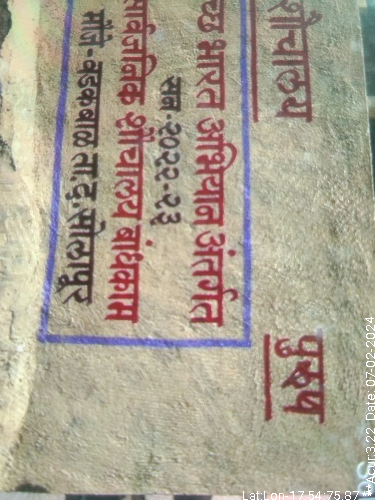 शौचालय
च्छ भारत अभियान अंतर्गत
सन-२०२२-२३
सार्वजनिक शौचालय बांधकाम
मौजे-वडकबाळ ता.द.सोलापूर
पुरुष
Lat Lon-17.54:75.87
Acur:3.22 Date: 07-02-2024